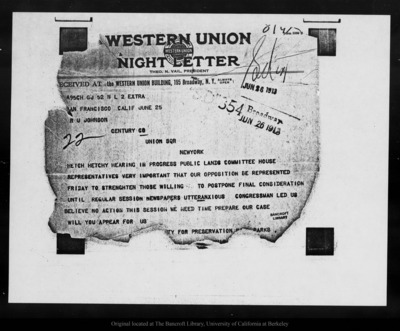 WESTERN UNION
NIGHT LETTER
THEO. N. VAIL, PRESIDENT
RECEIVED AT the WESTERN UNION BUILDING, 195 Broadway, N. Y. ALWAYS OPEN
JUN 26 1913
A95CH GJ 52 N L 2 EXTRA
354 Broadway
SAN FRANCISCO CALIF JUNE 25
JUN 26 1913
R U JOHNSON
22
CENTURY CO
UNION SQR
NEWYORK
HETCH HETCHY HEARING IN PROGRESS PUBLIC LANDS COMMITTEE HOUSE
REPRESENTATIVES VERY IMPORTANT THAT OUR OPPOSITION BE REPRESENTED
FRIDAY TO STRENGHTEN THOSE WILLING TO POSTPONE FINAL CONSIDERATION
UNTIL REGULAR SESSION NEWSPAPERS UTTERANXIOUS CONGRESSMAN LED US
BELIEVE NO ACTION THIS SESSION WE NEED TIME PREPARE OUR CASE
BANCROFT
LIBRARY
WILL YOU APPEAR FOR US
TY FOR PRESERVATION PARKS
Original located at The Bancroft Library, University of California at Berkeley